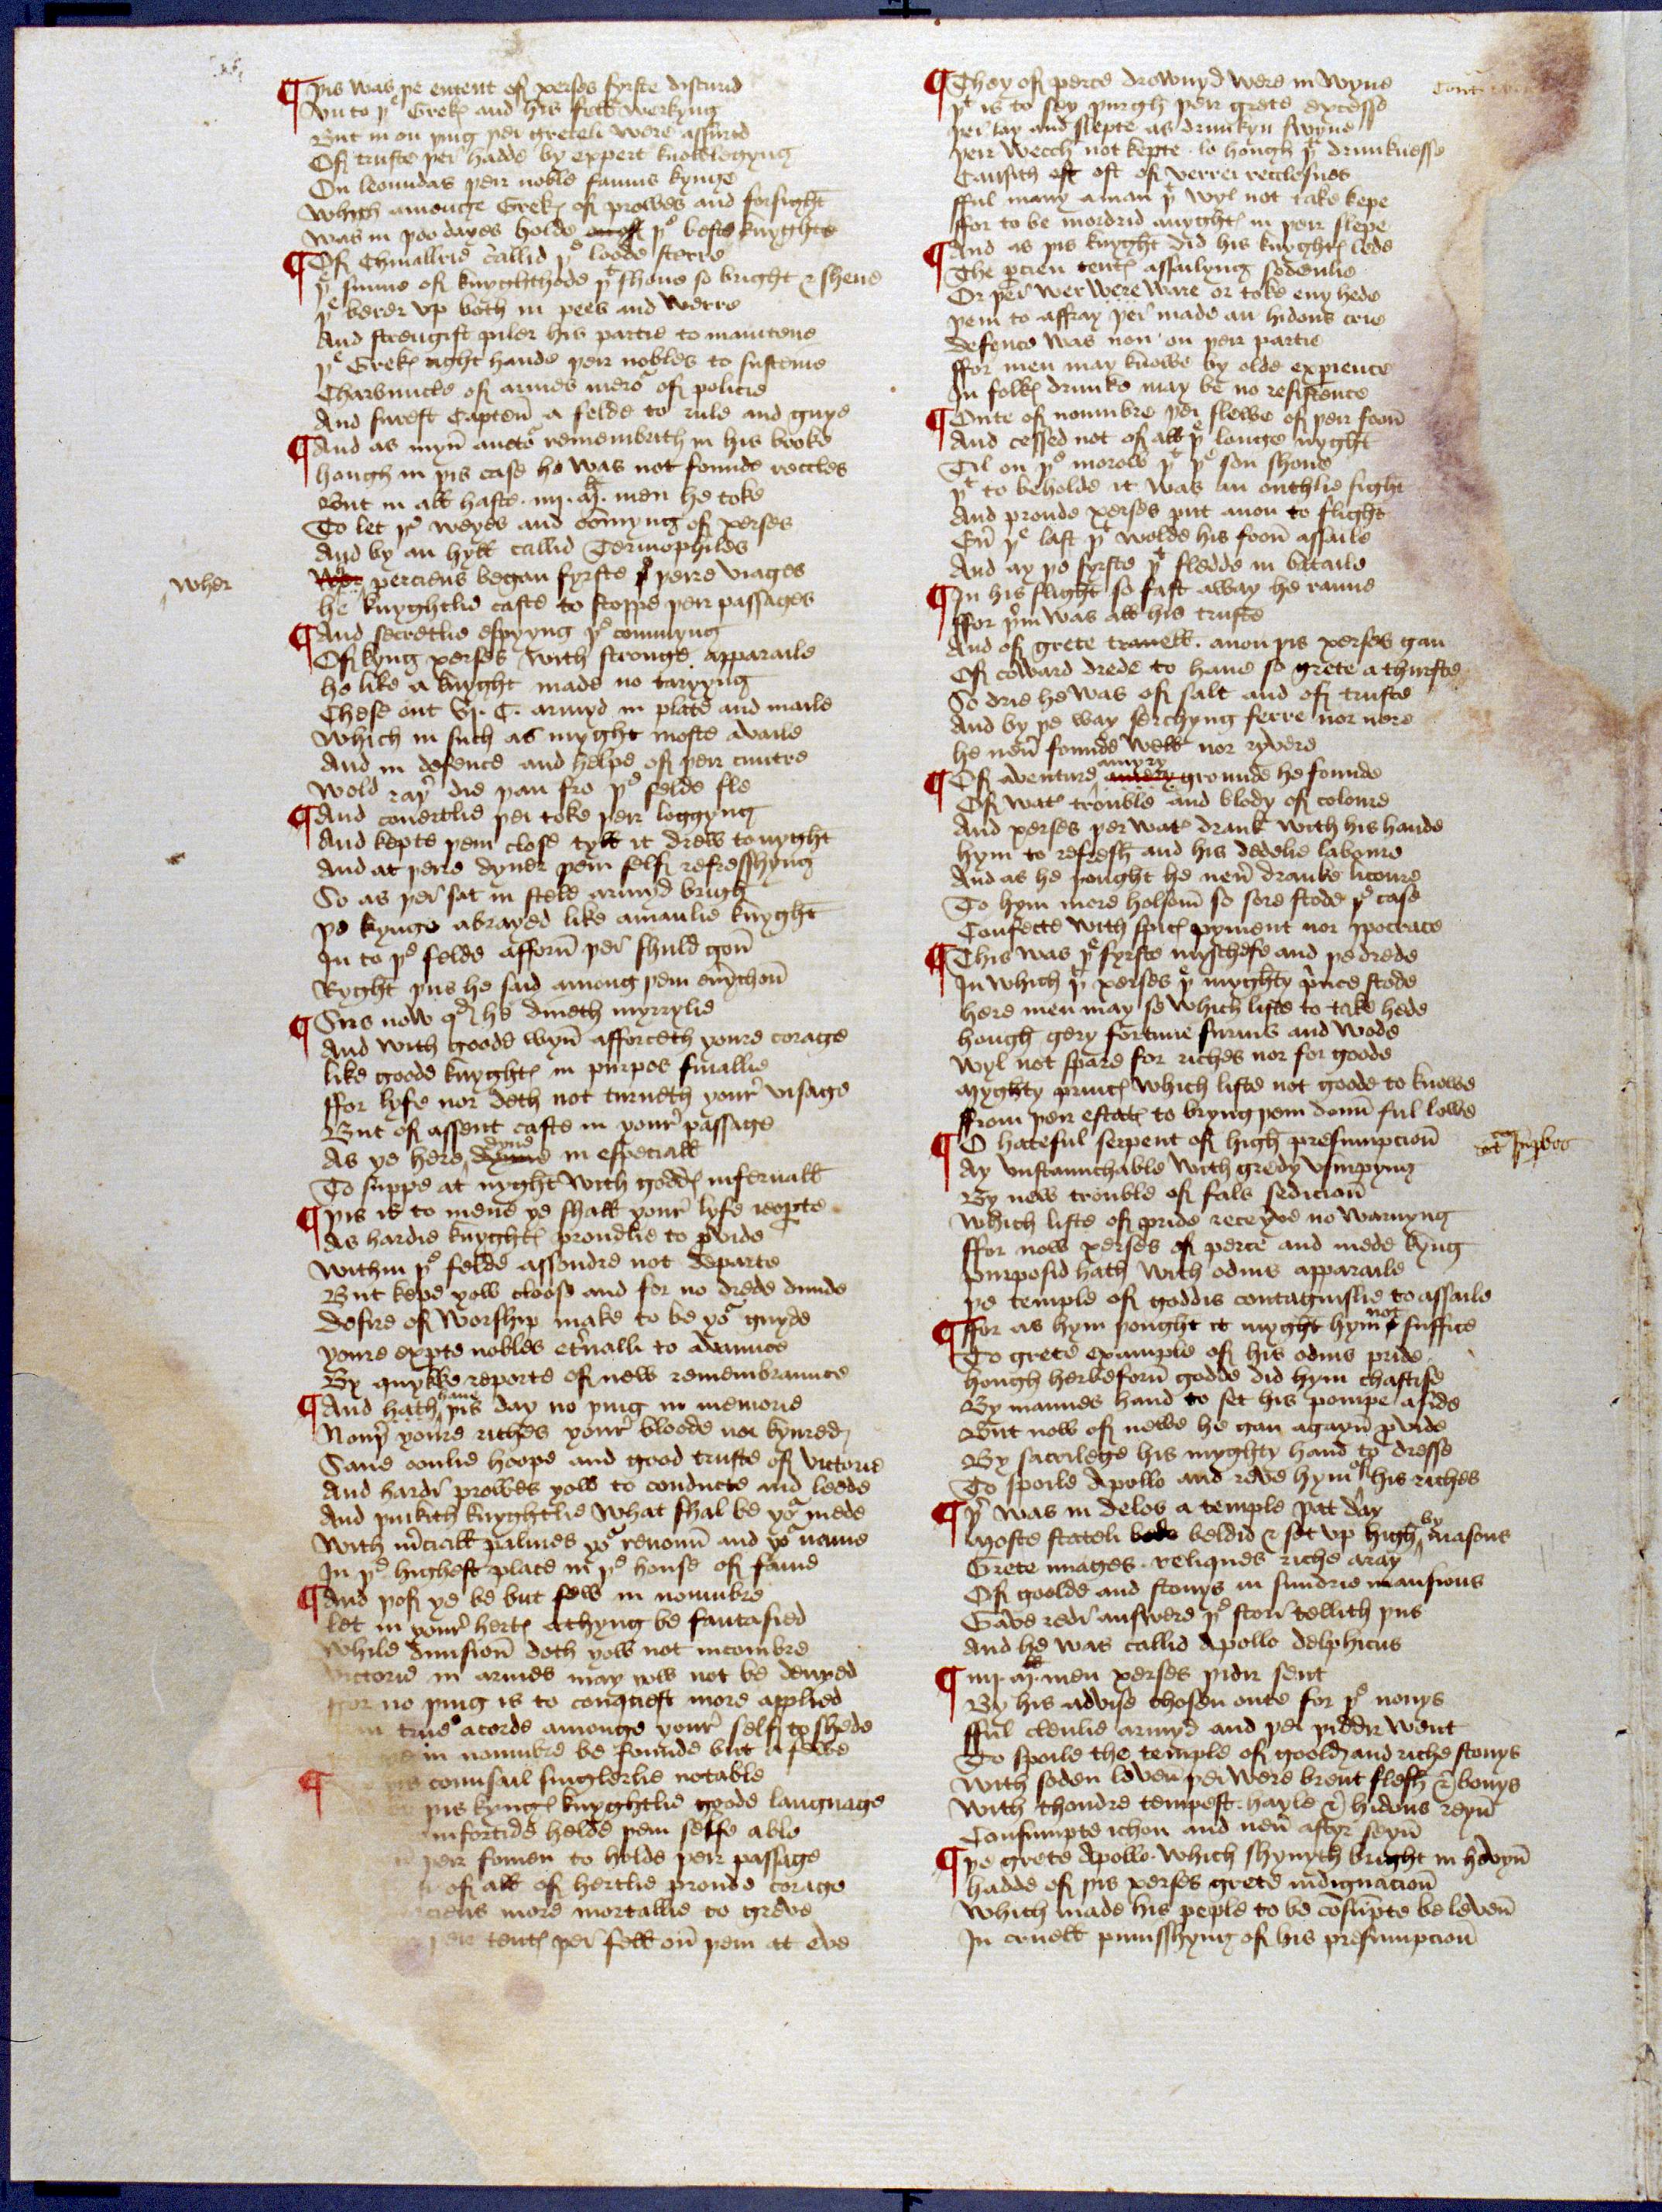 ¶ þis was þe entent of xerses fyrste discurid
Vn to þe Grekes and his fell werkyng
But in on þing þei greteli were assurid
Of truste þei hadde by expert knowlegyng
On leonidas þeir noble famus kynge
Which amonge Grekes of prowes and forsight
Was in þoo dayes holde þe beste knyghte
¶ Of Chiuallrie callid þe loode sterre
þe sunne of knyghthode þt shone so bright & shene
þe berer vp both in pees and werre
And strengist piler his partie to mantene
þe Grekes right hande þeir nobles to susteine
Charbuncle of armes meror of policie
And surest Capteyn a felde to rule and guye
¶ And as myn auctor remembrith in his booke
hough in þis case he was not founde reccles
But in all haste . iiij . Ml . men he toke
To let þe weyes and comyng of xerses
And by an hyll callid Termophiles
Wher perciens began fyrste þeire viages
wher
he knyghtlie caste to stoppe þeir passages
¶ And secretlie espyyng þe commyng
Of kyng xerses with stronge apparaile
he like a knyght made no taryyng
Chese out vj. C. armyd in plate and maile
Which in such as myght moste availe
And in defence and helpe of þeir cuntre
Wold raþer die þan fro þe felde fle
¶ And couertlie þei toke þeir loggyng
And kepte þem close tyll it drew to nyght
And at þeire dyner þem self refresshyng
So as þei sat in stele armyd brigh
þe kynge abrayed like a manlie knyght
In to þe felde afforn þei shuld gon
Ryght þus he said among þem euerychon
¶ Sirs now qd he dineth myrrylie
And with goode wyn afforceth youre corage
like goode knyghtes in purpos finallie
ffor lyfe nor deth not turneth your visage
But of assent caste in your passage
As ye here dyne in especiall
To suppe at nyght with goddes infernall
¶ þis is to mene ye shall your lyfe ieoparte
As hardie knyghtes proudlie to provide
Within þe felde assondre not departe
But kepe yow cloose and for no drede diuide
Desire of worship make to be yor guyde
youre experte nobles eternalli to avannce
By quykke reporte of new remembraunce
¶ And hath have þis day no þing in memorie
Noþer youre riches your bloode nor kynred
Saue oonlie hoope and good truste of victorie
And hardi prowes yow to conducte and leede
And þinkith knyghtlie what shal be yor mede
With merciall palmes yor renoun and yor name
In þe highest place in þe house of fame
¶ And þof ye be but few in noumbre
let in your hertes a thyng be fantasied
While diuision doth yow not incombre
Victorie in armes may yow not be denyed
ffor no þing is to conquest more applied
true acorde amonge your self to shede
in noumbre be founde but a fewe
¶ þis counsail singlerlie notable
þis kynges knyghtlie goode langnage
comfortide helde þem selfe able
þeir fomen to holde þeir passage
of all of hertlie proude corage
perciens more mortallie to greve
þeir tentes þei fell on þem at eve
¶ They of perce drownyd were in wyne
þt is to sey þurgh þeir grete excesse
þei lay and slepte as drunkyn swyne
þeir wecch not kepte . lo hough þt drunknesse
Causith oft of verrei recclesnes
fful many a man þt wyl not take kepe
ffor to be mordrid anyghtes in þeir slepe
¶ And as þis knyght did his knyghtes lede
The percien tentes assailyng sodenlie
Or þei wer were ware or toke eny hede
þem to affray þei made an hidous crie
defence was non on þeir partie
ffor men may knowe by olde experience
In folkes drunke may be no resistence
¶ Oute of noumbre þei slewe of þeir foon
And cessed not of all þe longe nyght
Til on þe morow þt þe son shone
þt to beholde it was an outhlie sight
And proude xerses put anon to flight
Euer þe last þt wolde his foon assaile
And ay þe fyrste þt fledde in bataile
¶ In his flight so fast away he ranne
ffor þerin was all his truste
And of grete travell . anon þis xerses gan
Of coward drede to haue so grete a thurste
So drie he was of salt and of truste
And by þe way serchyng ferre nor nere
he neuer founde well nor ryvere
¶ Of aventure amyry grounde he founde
Of water trouble and blody of coloure
And xerses þer water drank with his hande
hym to refresh and his dedelie laboure
And as he þought he neuer dranke licoure
To hym more holsom so sore stode þe case
Confecte with spices pyment nor ipocrace
¶ This was þe fyrste myschefe and þe drede
In which þt xerses þe myghty prince stode
here men may se which liste to take hede
hough gery fortune furius and wode
Wyl not spare for riches nor for goode
Myghty princes which liste not goode to knowe
ffrom þeir estates to bryng þem doun ful lowe
¶ O hateful serpent of high presumpcion
Ay vnstaunchable with gredy vsurpyng
By new trouble of fals sedicion
Which liste of pride receyve no warnyng
ffor now xerses of perce and mede kyng
Purposid hath with odius apparaile
þe temple of goddis contagiuslie to assaile
¶ ffor as hym þought it myght hym not suffice
To grete example of his odius pride
hough herbeforn godde did hym chastise
By mannes hand to set his pompe aside
But now of newe he gan agayn provide
By sacrilege his myghty hand to dresse
To spoile Apollo and reve hym of his riches
¶ þer was in delos a temple þat day
Moste stateli beldid & set vp high by masons
Grete images . reliques riche aray
Of goolde and stonys in sundrie mansions
Gave redi answere þe stori tellith þus
And he was callid Apollo delphicus
¶ iiij . Ml . men xerses þidir sent
By his advise chosen oute for þe nonys
fful clenlie armyd and þei þiddir went
To spoile the temple of goold and riche stonys
With soden leven þei were brent flesh & bonys
With thondre tempest . hayle & hidous reyn
Consumpte ichon and neuer aftyr seyn
¶ þe grete Apollo which shynyth bright in hevyn
hadde of þis xerses grete indignacion
Which made his peple to be consumpte be leven
In cruell punisshyng of his presumpcion